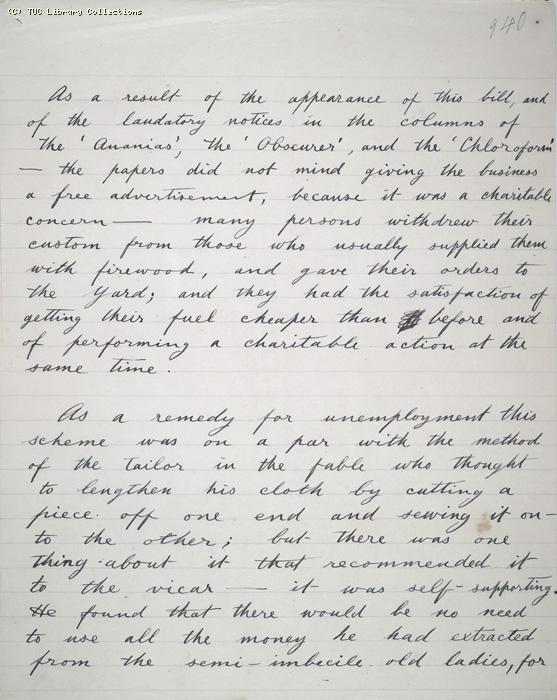 (C) TUC Library Collections
940.
As a result of the appearance of this bill, and
of the laudatory notices in the columns of
the 'Ananias', the 'Obscurer', and the 'Chloroform'
— the papers did not mind giving the business
a free advertisement, because it was a charitable
concern — many persons withdrew their
custom from those who usually supplied them
with firewood, and gave their orders to
the Yard; and they had the satisfaction of
getting their fuel cheaper than before and
of performing a charitable action at the
same time.
As a remedy for unemployment this
scheme was on a par with the method
of the tailor in the fable who thought
to lengthen his cloth by cutting a
piece off one end and sewing it on-
to the other; but there was one
thing about it that recommended it
to the vicar — it was self-supporting.
He found that there would be no need
to use all the money he had extracted
from the semi-imbecile old ladies, for